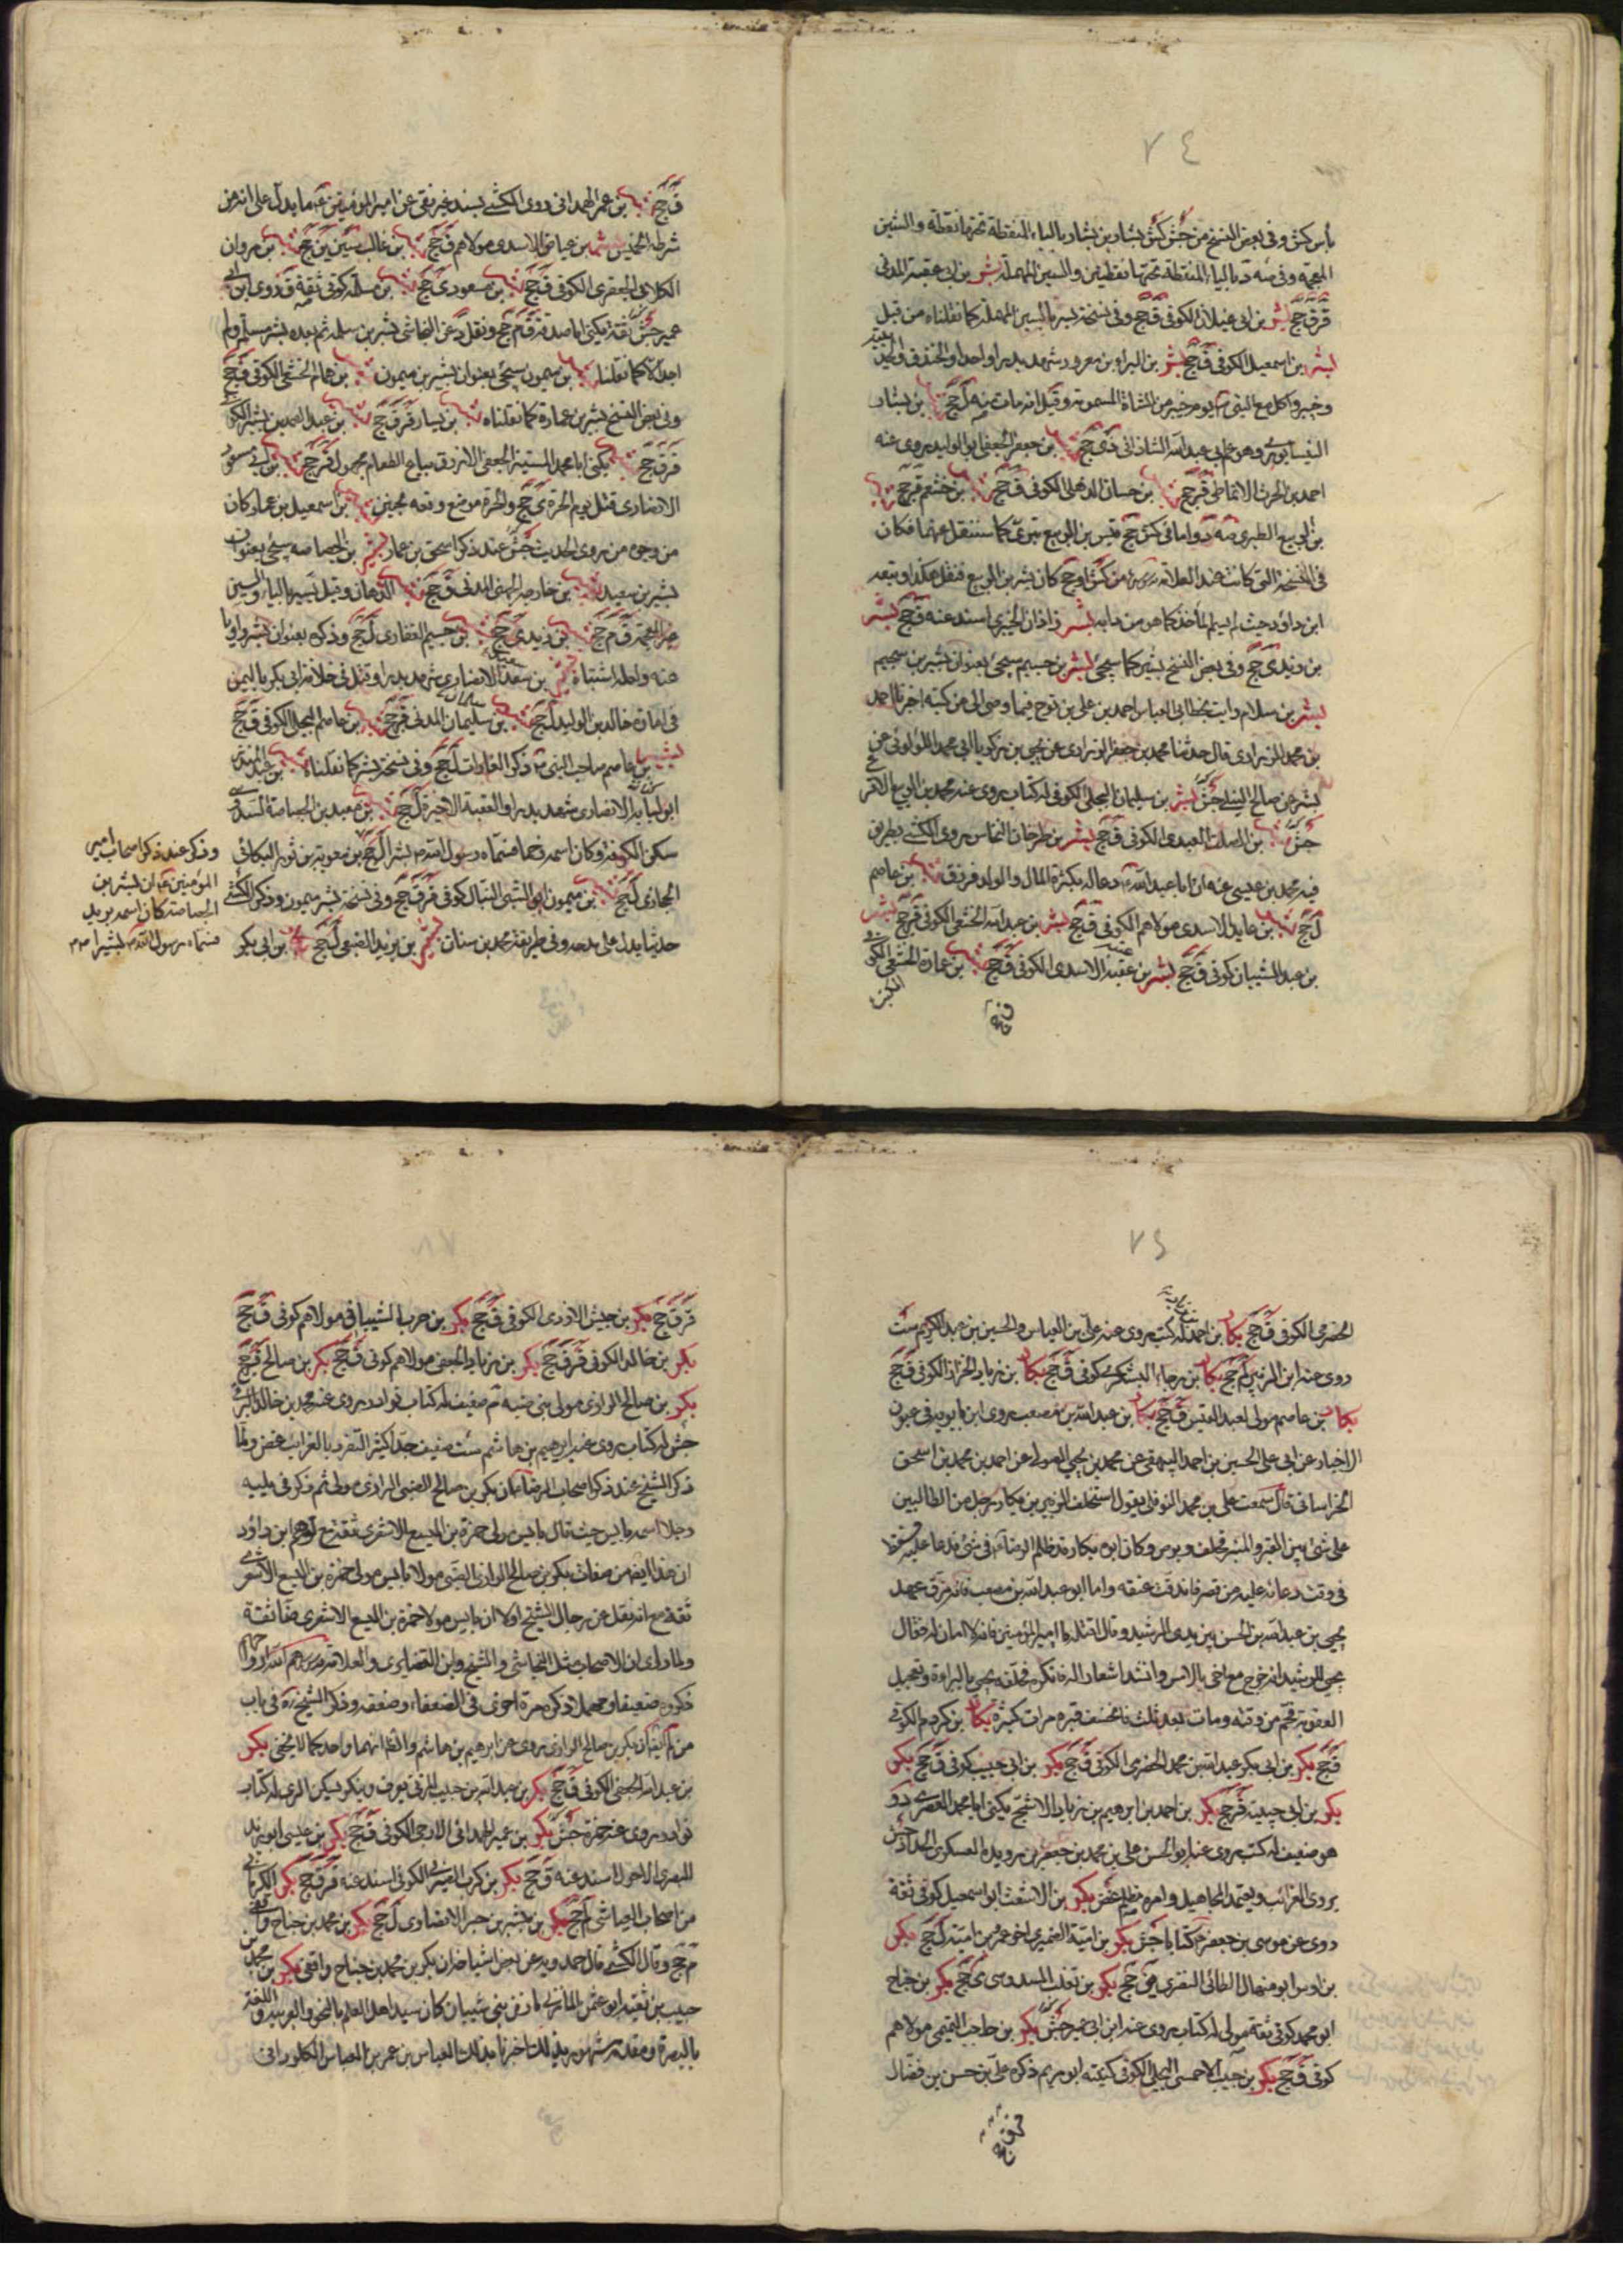 ٧٤
بأس كش وفى بعض النسخ من جش كش بشار بن بشار بالباء المنقطة تحتها نقطة والشين
المعجمة وفى ... بالياء المنقطة تحتها نقطتين والسين المهملة بشر بن ابى عقبة المدنى
قر ق جخ بشر بن ابى غيلان الكوفى ق جخ وفى نسخة بسر بالسين المهملة كما نقلناه من قبل
بشر بن اسمعيل الكوفى ق جخ بشر بن البراء بن معرور شهد بدرا واحدا والخندق والحديبية
وخيبر واكل مع النبى يوم خيبر من الشاة المسمومة وقيل انه مات منه ل جخ بشر بن بشار
النيسابورى وهو عم ابى عبد الله الشاذانى دى جخ بشر بن جعفر الجعفى ابو الوليد يروى عنه
احمد بن الحرث الانماطى قر جخ بشر بن حسان الذهلى الكوفى ق جخ بشر بن خثعم قر جخ بشر
بن الربيع الطبرى ... واما فى كش جخ قيس بن الربيع بترى كما سننقل عنهما فكان
فى النسخة التى كانت عند العلامة من كش او جخ كان بشر بن الربيع فنقل هكذا وتبعه
ابن داود حيث لم يسم المأخذ كما هو من دابه بشر زاذان الجزرى اسند عنه ق جخ بشر
بن زيد ى جخ وفى بعض النسخ بشير كما سيجئ بشر بن سحيم سيجئ بعنوان بشير بن سحيم
بشر بن سلام رايت بخط ابى العباس احمد بن على بن نوح فيما وصى الى من كتبه اخبرنا احمد
بن محمد الزرارى قال حدثنا محمد بن جعفر الرزاز عن يحيى بن زكريا ابى محمد اللؤلؤى عن
بشر عن صالح النيلى جش بشر بن سليمان البجلى الكوفى له كتاب يروى عنه محمد بن الربيع الاقرع
جش بشر بن الصلت العبدى الكوفى ق جخ بشر بن طرخان النخاس روى الكشى بطريق
فيه محمد بن عيسى عنه ان ابا عبد الله دعا له بكثرة المال والولد فرزق بشر بن عاصم
ل جخ بشر بن عايد الاسدى مولاهم الكوفى ق جخ بشر بن عبد الله الخثعمى الكوفى قر جخ بشر
بن عبد الشيبان كوفى ق جخ بشر بن عقبة الاسدى الكوفى ق جخ بشر بن عمارة الخثعمى الكوفى
ق جخ بشر بن عمر الهمدانى روى الكشى بسند غير نقى عن امير المؤمنين ما يدل على انه من
شرطة الخميس بشر بن عياض الاسدى مولاهم ق جخ بشر بن غالب سين ين جخ بشر بن مروان
الكلابى الجعفرى الكوفى ق جخ بشر بن مسعود ى جخ بشر بن مسلمة كوفى ثقة ق روى ابن ابى
عمير جش ثقة يكنى ابا صدقة ق م جخ ونقل د عن النجاشى بشر بن سلمة ثم بعده بشر مسلم ولم
اجد الا كما نقلنا بشر بن ميمون سيجئ بعنوان بشير بن ميمون بشر بن همام الخثعمى الكوفى ق جخ
وفى بعض النسخ بشر بن عمارة كما نقلناه بشر بن يسار قر ق جخ بشير بن عبد الصمد بن بشير الكوفى
قر ق جخ بشير يكنى ابا محمد المستنير الجعفى الازرق بياع الطعام مجهول قر جخ بشير بن ابى مسعود
الانصارى قتل يوم الحرة ى جخ والحرة موضع وقعة حنين بشير بن اسمعيل بن عمار كان
من وجوه من روى الحديث جش عند ذكر اسحق بن عمار بشير بن الخصاصية سيجئ بعنوان
بشير بن معبد بشير بن خارجة الجهنى المدنى ق جخ بشير الدهان وقيل يسير بالياء والسين
غير المعجمة ق م جخ بشير بن زيد ى جخ بشير بن سحيم الغفارى ل جخ وذكره بعنوان بشر راويا
عنه ولعله اشتباه بشير بن سعد الانصارى شهد بدرا وقتل فى خلافة ابى بكر باليمن
فى امارة خالد بن الوليد ل جخ بشير بن سليمان المدنى قر جخ بشير بن عاصم البجلى الكوفى ق جخ
بشير بن عاصم صاحب النبى ذكر الغارات ل جخ وفى نسخة بشر كما نقلناه بشير بن عبد المنذر
ابو لبابة الانصارى شهد بدرا والعقبة الاخيرة ل جخ بشير بن معبد بن الخصاصة السدوسى
سكن الكوفة وكان اسمه زحما فسماه رسول الله بشيرا ل جخ بشير بن معوية بن ثور البكائى
الحجازى ل جخ بشير بن ميمون ابو الشبى النبال كوفى قر ق جخ وفى نسخة بشر ميمون وذكر الكشى
حديثا يدل على مدحه وفى طريقه محمد بن سنان بشير بن يزيد الضبعى ل جخ بكار بن ابى بكر
وذكر عند ذكر اصحاب امير
المؤمنين ان بشر بن
الخصاصة كان اسمه بريد
فسماه رسول الله بشيرا
٧٥
الحضرمى الكوفى ق جخ بكار بن احمد له كتب يروى عنه على بن العباس والحسين بن عبد الكريم ست
روى عنه ابن الزبير لم جخ بكار بن رجاء اليشكرى كوفى ق جخ بكار بن زياد الخزاز الكوفى ق جخ
بكار بن عاصم مولى لعبد القيس ق جخ بكار بن عبد الله بن مصعب روى ابن بابويه فى عيون
الاخبار عن ابى على الحسين بن احمد البيهقى عن محمد بن يحيى الصولى عن احمد بن محمد بن اسحق
الخراسانى قال سمعت على بن محمد النوفلى يقول استحلف الزبير بن بكار رجل من الطالبيين
على شئ بين القبر والمنبر فحلف وبرص وكان ابوه بكار قد ظلم الرضا فى شئ فدعا عليه فسقط
فى وقت دعائه عليه من قصر فاندقت عنقه واما ابو عبد الله بن مصعب فانه مزق عهد
يحيى بن عبد الله بن الحسن بين يدى الرشيد وقال اقتله يا امير المؤمنين فانه لا امان له فقال
يحيى للرشيد انه خرج مع اخى بالامس وانشد اشعار اله فانكره فحلفه يحيى بالبراءة وتعجيل
العقوبة فحم من وقته ومات بعد ثلث فانخسف قبره مرات كثيرة بكار بن كردم الكوفى
ق جخ بكر بن ابى بكر عبد الله بن محمد الحضرمى الكوفى ق جخ بكر بن ابى حبيب كوفى ق جخ بكر
بكر بن ابى حبيبة قر جخ بكر بن احمد بن ابرهيم بن زياد الاشج يكنى ابا محمد العصرى د و
هو ضعيف له كتب يروى عنه ابو الحسن على بن محمد بن جعفر بن رويدة العسكرى الحداد جش
يروى الغرائب ويعتمد المجاهيل وامره مظلم غض بكر بن الاشعث ابو اسمعيل كوفى ثقة
روى عن موسى بن جعفر كتابا جش بكر بن امية الضميرى اخو عمر بن امية ل جخ بكر
بن اوس ابو منهال الطائى البصرى ين جخ بكر بن تغلب السدوسى ى جخ بكر بن جناح
ابو محمد كوفى ثقة مولى له كتاب يروى عنه ابن ابى عمير جش بكر بن حاجب التميمى مولاهم
كوفى ق جخ بكر بن حبيب الاحمسى البجلى الكوفى كنيته ابو مريم ذكره على بن حسن بن فضال
قر ق جخ بكر بن حبيش الازدى الكوفى ق جخ بكر بن حرب الشيبانى مولاهم كوفى ق جخ
بكر بن خالد الكوفى قر ق جخ بكر بن زياد الجعفى مولاهم كوفى ق جخ بكر بن صالح ق جخ
بكر بن صالح الرازى مولى بنى ضبة م ضعيف له كتاب نوادر يروى عنه محمد بن خالد البرقى
جش له كتاب يروى عنه ابرهيم بن هاشم ست ضعيف جدا كثير التفرد بالغرائب غض ولما
ذكر الشيخ عند ذكر اصحاب الرضا بكر بن صالح الضبى الرازى مولى ثم ذكر فى يليه
رجلا اسمه بايس حيث قال بايس مولى حمزة بن اليسع الاشعرى ثقة ضع توهم ابن داود
ان هذا ايضا من صفات بكر بن صالح الرازى الضبى مولا بايس مولى حمزة بن اليسع الاشعرى
ثقة مع انه نقل عن رجال الشيخ اولا ان بايس مولا حمزة بن اليسع الاشعرى ضا ثقة
ولما راى ان الاصحاب مثل النجاشى والشيخ وابن الغضايرى والعلامة
ذكروه ضعيفا ومهملا ذكره مرة اخرى فى الضعفاء وضعفه وذكر الشيخ فى باب
من لم ايضا ان بكر بن صالح الرازى يروى عن ابرهيم بن هاشم والظ انهما واحد كما لا يخفى بكر
بن عبد الله الجعفى الكوفى ق جخ بكر بن عبد الله بن حبيب المزنى يعرف وينكر يسكن الرى له كتاب
نوادر يروى عنه حمزة جش بكر بن عمير الهمدانى الارحبى الكوفى ق جخ بكر بن عيسى ابو زيد
البصرى الاحول اسند عنه ق جخ بكر بن كرب الصيرفى الكوفى اسند عنه قر ق جخ بكر الكرمانى
من اصحاب العياشى لم جخ بكر بن مبشر بن جبر الانصارى ل جخ بكر بن محمد بن جناح واقفى
م جخ وقال الكشى قال حمدويه عن بعض اشياخه ان بكر بن محمد بن جناح واقفى بكر بن محمد بن
حبيب بن بقية ابو عثمن المازنى مازن بنى شيبان كان سيد اهل العلم بالنحو والعربية واللغة
بالبصرة ومقدمه مشهور بذلك اخبرنا بذلك العباس بن عمر بن العباس الكلوذانى